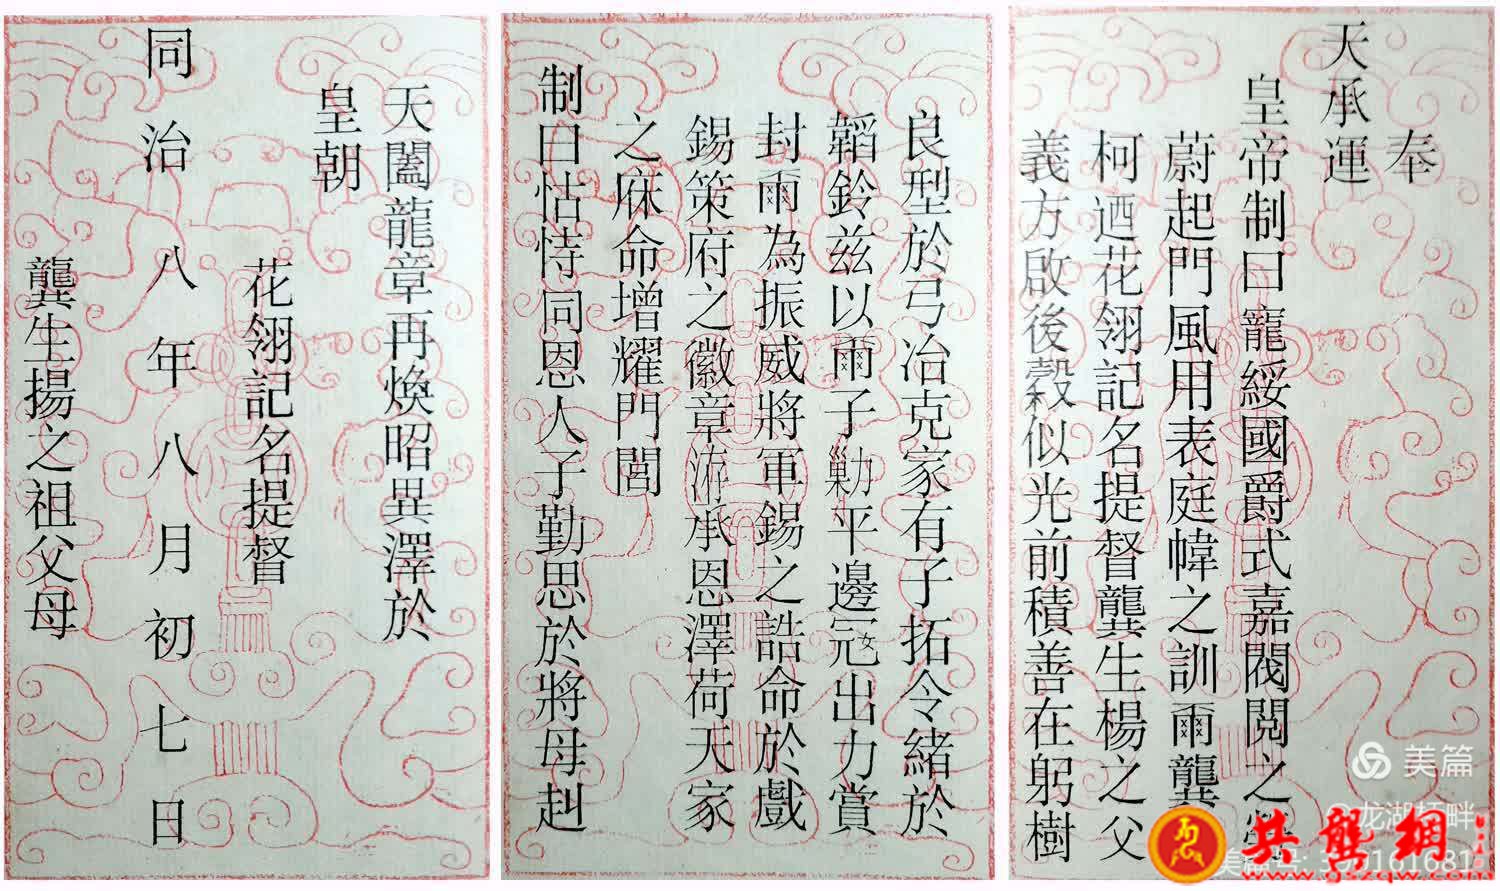 奉
天承運
皇帝制曰寵綏國爵式嘉閥閱之榮
蔚起門風用表庭幃之訓爾龔
柯迺花翎記名提督龔生楊之父
義方啟後穀似光前積善在躬樹
良型於弓冶克家有子拓令緒於
韜鈐兹以爾子勦平邊寇出力賞
封爾為振威將軍錫之誥命於戲
錫策府之徽章洊承恩澤荷天家
之庥命增耀門閭
制曰怙恃同恩人子勤思於將母赳
天闔龍章再煥昭異澤於
皇朝
花翎記名提督
同治八年八月初七日
龔生揚之祖父母
美篇
龙湖
共龔網